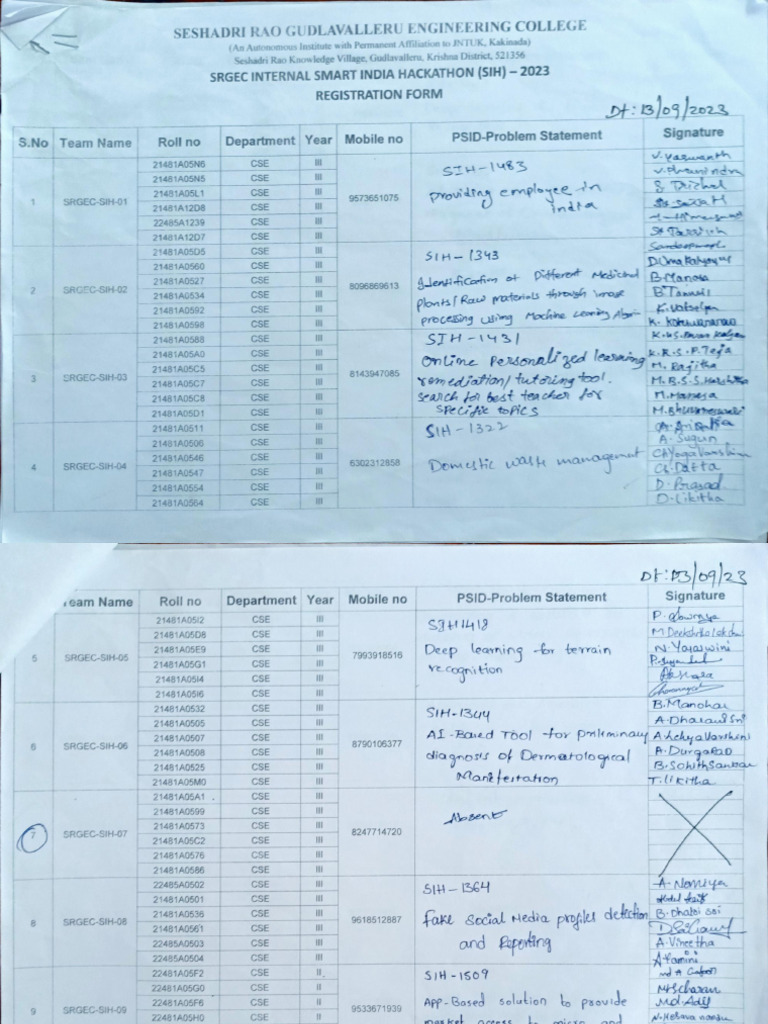 SESHADRI RAO GUDLAVALLERU ENGINEERING COLLEGE
(An Autonomous Institute with Permanent Affiliation to JNTUK, Kakinada)
Seshadri Rao Knowledge Village, Gudlavalleru, Krishna District, 521356
SRGEC INTERNAL SMART INDIA HACKATHON (SIH) – 2023
REGISTRATION FORM
Dt: 13/09/2023
S.No Team Name Roll no Department Year Mobile no PSID-Problem Statement Signature
1 SRGEC-SIH-01 9573651075
SIH-1483
providing employee in
india
21481A05N6 CSE III V. Yaswanth
21481A05N5 CSE III
21481A05L1 CSE III
21481A12D8 CSE III
22485A1239 CSE III
21481A12D7 CSE III
2 SRGEC-SIH-02 8096869613
SIH-1343
Identification of Different Medicinal
plants/Raw materials through image
processing using Machine Learning
21481A05D5 CSE III
21481A0560 CSE III
21481A0527 CSE III B. Manasa
21481A0534 CSE III
21481A0592 CSE III
21481A0598 CSE III
3 SRGEC-SIH-03 8143947085
SIH-1431
Online personalized learning
remediation/tutoring tool.
search for best teacher for
specific topics
21481A0588 CSE III
21481A05A0 CSE III K.R.S.P. Teja
21481A05C5 CSE III M. Rajitha
21481A05C7 CSE III
21481A05C8 CSE III M. Manasa
21481A05D1 CSE III
4 SRGEC-SIH-04 6302312858
SIH-1322
Domestic waste management
21481A0511 CSE III
21481A0506 CSE III A. Sugun
21481A0546 CSE III
21481A0547 CSE III Ch. Datta
21481A0554 CSE III D. Prasad
21481A0564 CSE III D. Likitha
Dt: 13/09/23
Team Name Roll no Department Year Mobile no PSID-Problem Statement Signature
5 SRGEC-SIH-05 7993918516
SIH1418
Deep learning for terrain
recognition
21481A05I2 CSE III
21481A05D8 CSE III
21481A05E9 CSE III N. Yasaswini
21481A05G1 CSE III
21481A05I4 CSE III
21481A05I6 CSE III
6 SRGEC-SIH-06 8790106377
SIH-1344
AI-Based Tool for preliminary
diagnosis of Dermatological
Manifestation
21481A0532 CSE III B. Manohar
21481A0505 CSE III A. Dharani Sri
21481A0507 CSE III
21481A0508 CSE III A. Durgarao
21481A0525 CSE III
21481A05M0 CSE III T. Likitha
7 SRGEC-SIH-07 8247714720
Absent
21481A05A1 CSE III
21481A0599 CSE III
21481A0573 CSE III
21481A05C2 CSE III
21481A0576 CSE III
21481A0586 CSE III
8 SRGEC-SIH-08 9618512887
SIH-1364
Fake Social Media profiles detection
and Reporting
22485A0502 CSE III
21481A0501 CSE III
21481A0536 CSE III
21481A0561 CSE III
22485A0503 CSE III A. Vineetha
22485A0504 CSE III A. Yamini
9 SRGEC-SIH-09 9533671939
SIH-1509
APP-Based solution to provide
market access to micro and
22481A05F2 CSE II
22481A05G0 CSE II
22481A05F6 CSE II Md. Adil
22481A05H0 CSE II